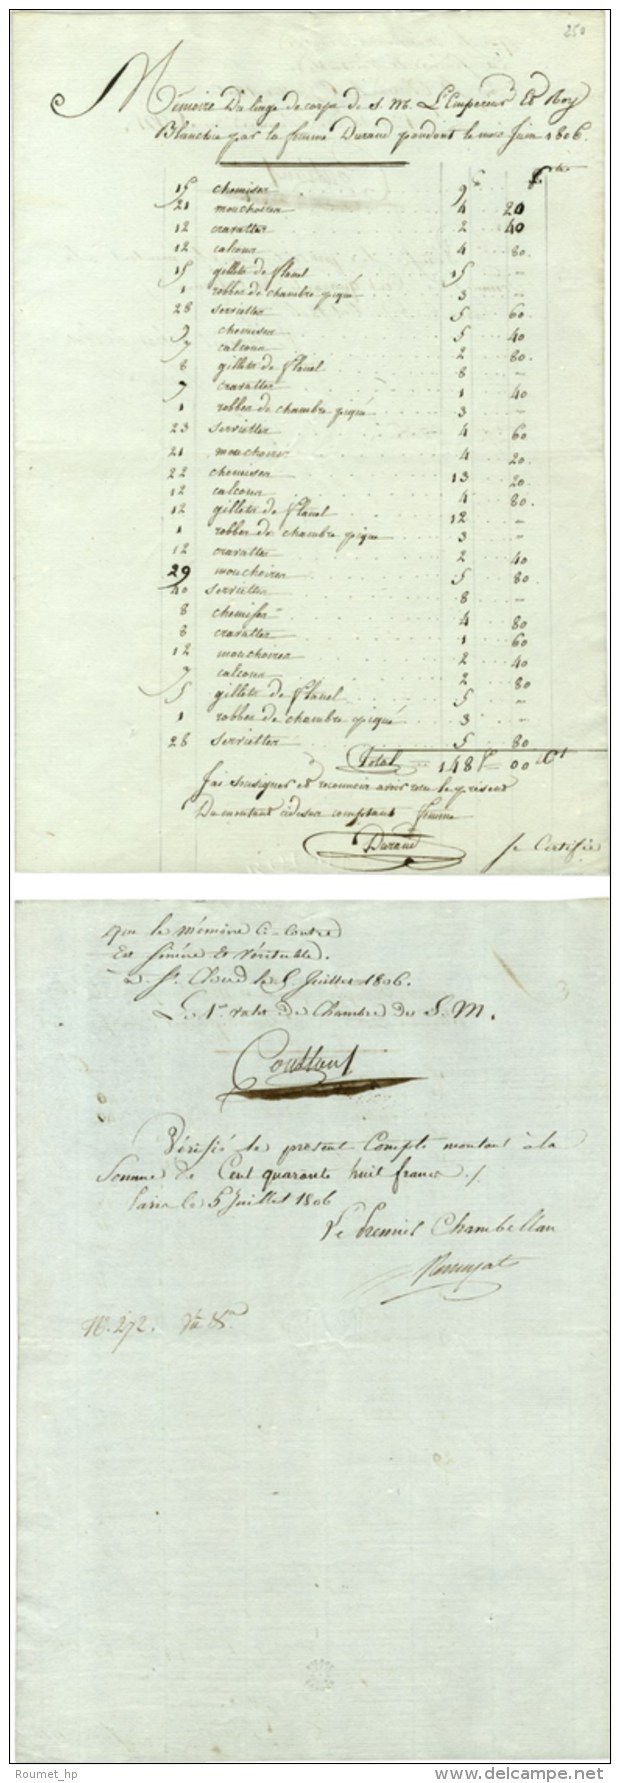 250
Mémoire Du linge de corps de S. M. L'Empereur Et Roy
Blanchie par la femme Durand pendent le mois Juin 1806.
15 chemises 9
21 mouchoires 4 20
12 cravattes 2 40
12 calcons 4 80.
15 gillets de flanel 15 —
1 robbes de chambre piqué 3 —
28 serviettes 5 60
9 chemises 5 40
7 calcons 2 80.
8 gillets de flanel 8 —
7 cravattes 1 40
1 robbes de chambre piqué 3 —
23 serviettes 4 60
21 mouchoires 4 20
22 chemises 13 20
12 calcons 4 80.
12 gillets de flanel 12 —
1 robbes de chambre piqué 3 —
12 cravattes 2 40
29 mouchoires 5 80
40 serviettes 8 —
8 chemises 4 80
8 cravattes 1 60
12 mouchoires 2 40
7 calcons 2 80
5 gillets de flanel 5 —
1 robbes de chambre piqué 3 —
28 serviettes 5 80
Total 148 f = 00 Ct
J'ai sousigner et reconnois avoir recu le présent
Du montant cidesus comptant femme
Durand Je Certifie
que le Mémoire Ci-contre
Est sincére et Véritable.
à St. Cloud le 5 Juillet 1806.
Le 1er valet de Chambre de S. M.
Constant
Vérifié le present Compte montant à la
Somme de Cent quarante huit francs ./.
Paris le 5 Juillet 1806
Le Premier Chambellan
Remusat
No. 272.
Roumet_hp
delcampe.net